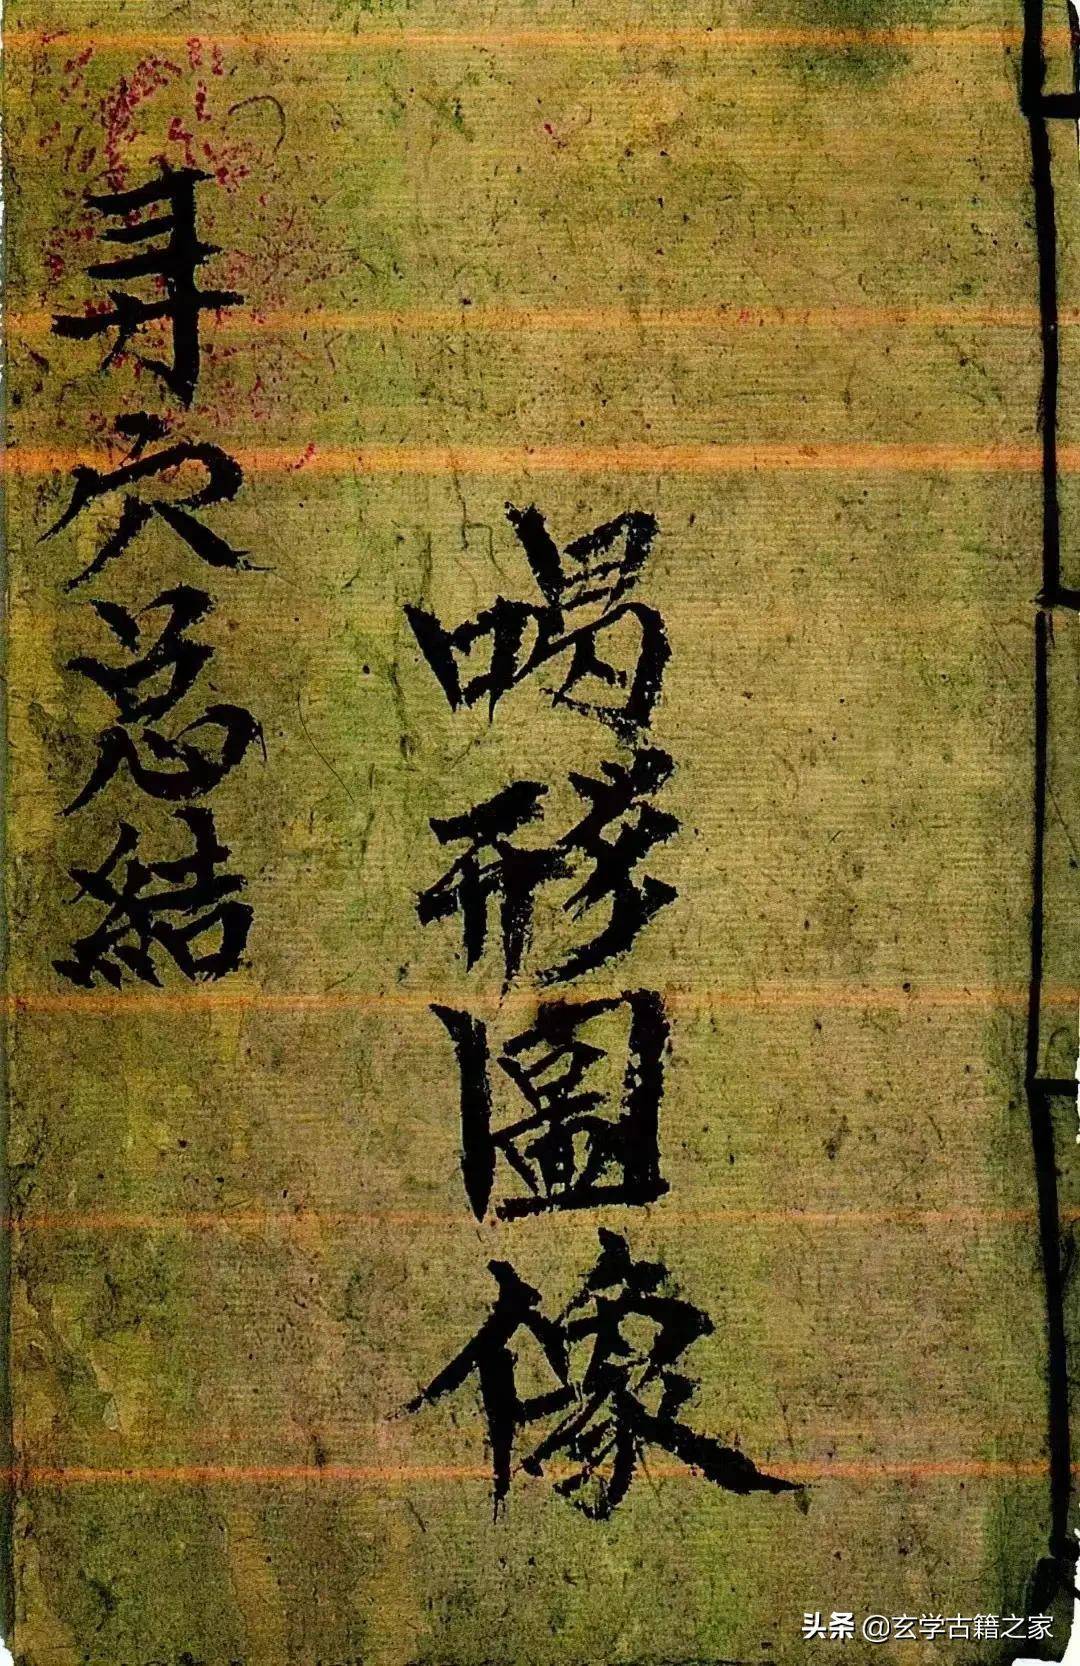 喝形圖像
寻穴总結
头条 @玄学古籍之家